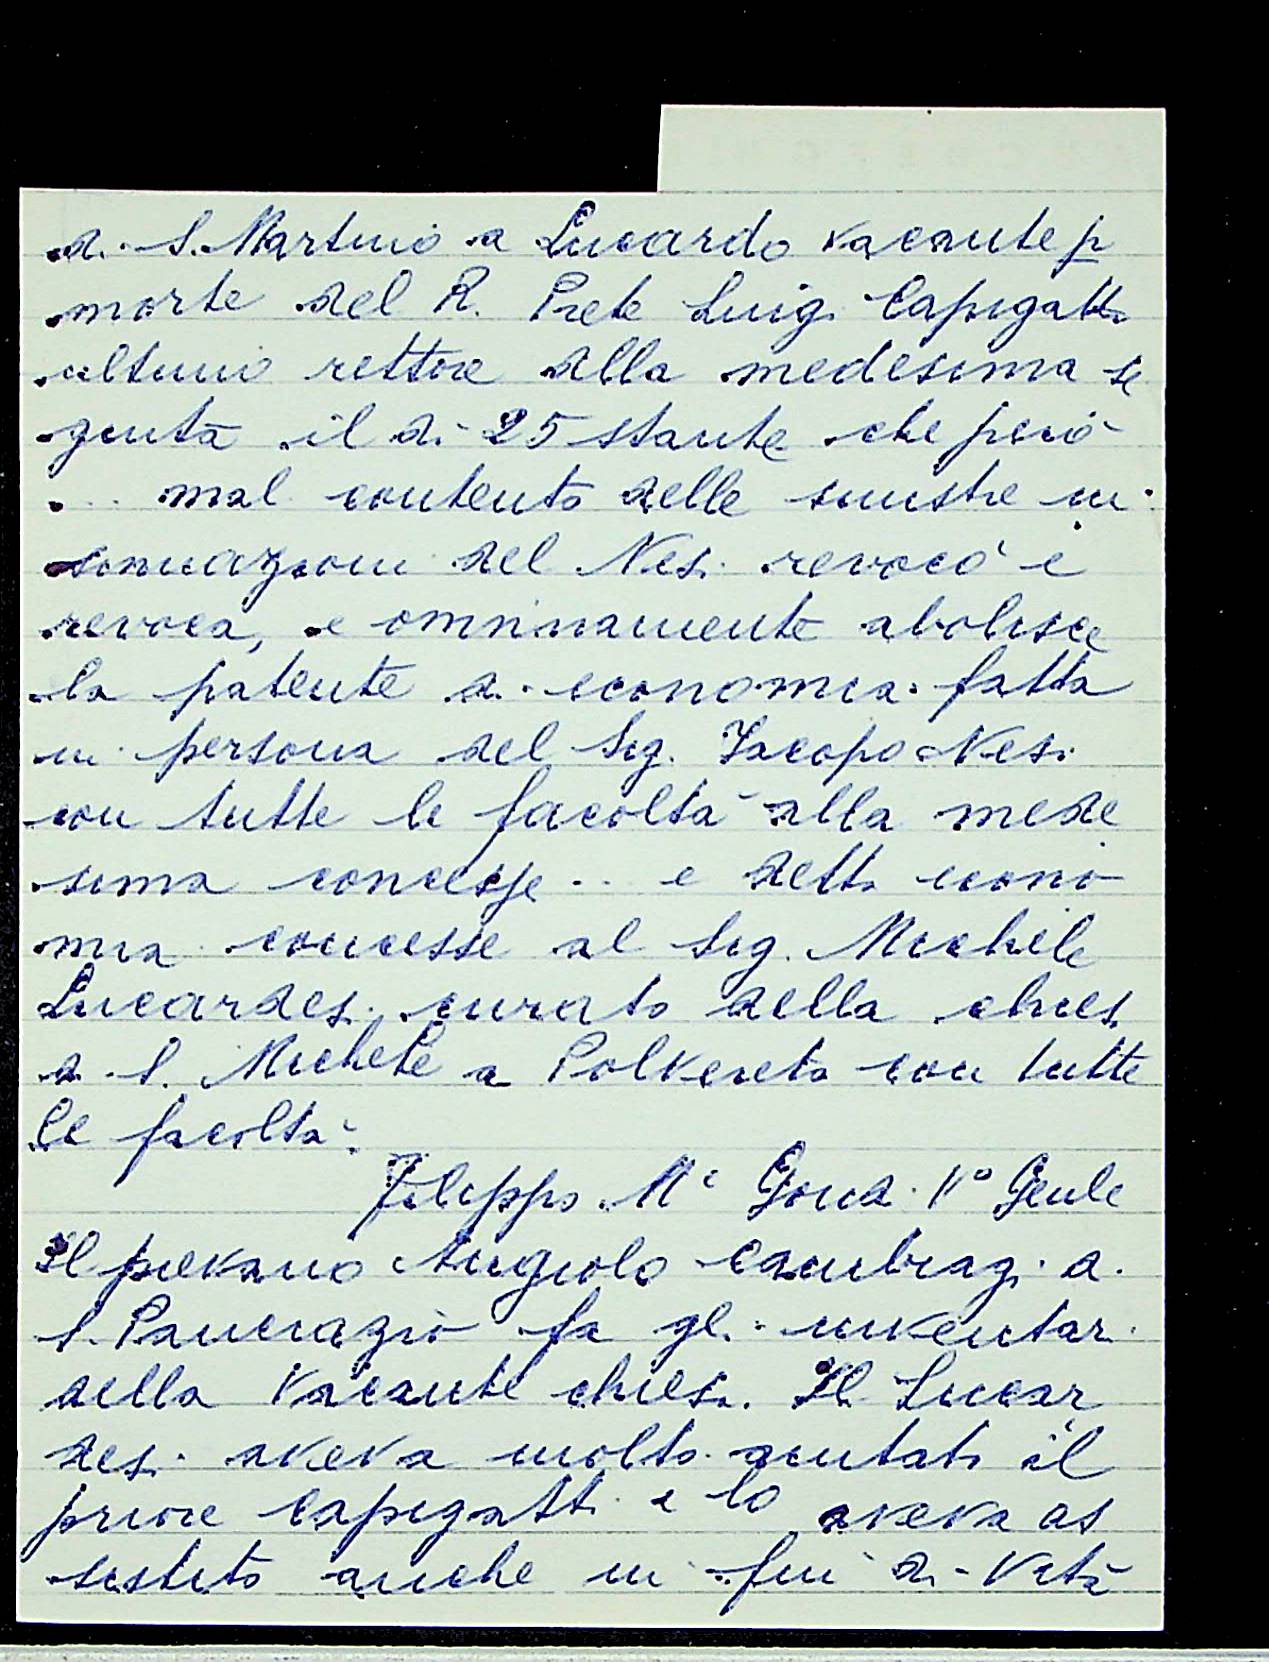 di S. Martino a Lucardo vacante p
morte del R. Prete Luigi Capigatti
ultimo rettore della medesima se
guita il di 25 stante che però
... mal contento delle sinistre in
sinuazioni del Nesi revocò e
revoca, e omninamente abolisce
la patente di economia fatta
in persona del Sig. Jacopo Nesi
con tutte le facoltà alla mede
sima concesse ... e detta econo
mia concesse al Sig. Michele
Lucardesi curato della chiesa
di S. Michele a Polvereto con tutte
le facoltà.
Filippo Mª Gondi Vº Genle
Il pievano Angiolo Cambiagi di
S. Pancrazio fa gli inventari
della vacante chiesa. Il Lucar
desi aveva molto aiutato il
priore Capigatti e lo aveva as
sistito anche in fin di vita